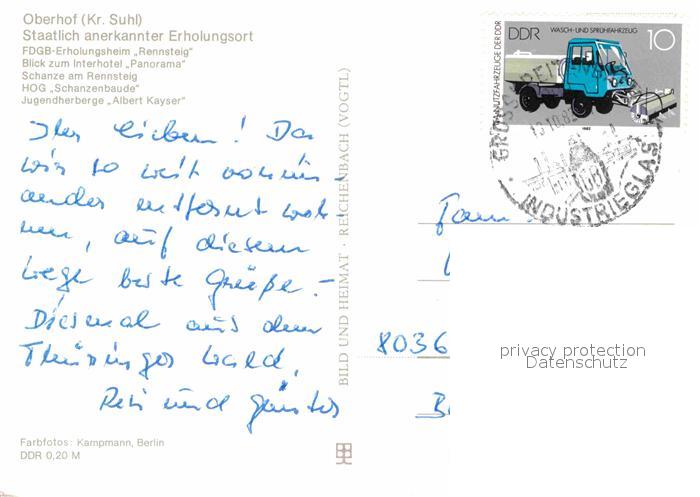 Oberhof (Kr. Suhl)
Staatlich anerkannter Erholungsort
FDGB-Erholungsheim „Rennsteig"
Blick zum Interhotel „Panorama"
Schanze am Rennsteig
HOG „Schanzenbaude"
Jugendherberge „Albert Kayser"
Ihr Lieben! Da
wir so weit vonein-
ander entfernt woh
nen, auf diesem
Wege beste Grüße. –
Diesmal aus dem
Thüringer Wald.
und Günter
Farbfotos: Kampmann, Berlin
DDR 0,20 M
BILD UND HEIMAT · REICHENBACH (VOGTL)
NUTZFAHRZEUGE DER DDR
DDR
WASCH- UND SPRÜHFAHRZEUG
10
1982
INDUSTRIEGLAS
Fam.
8036
privacy protection
Datenschutz